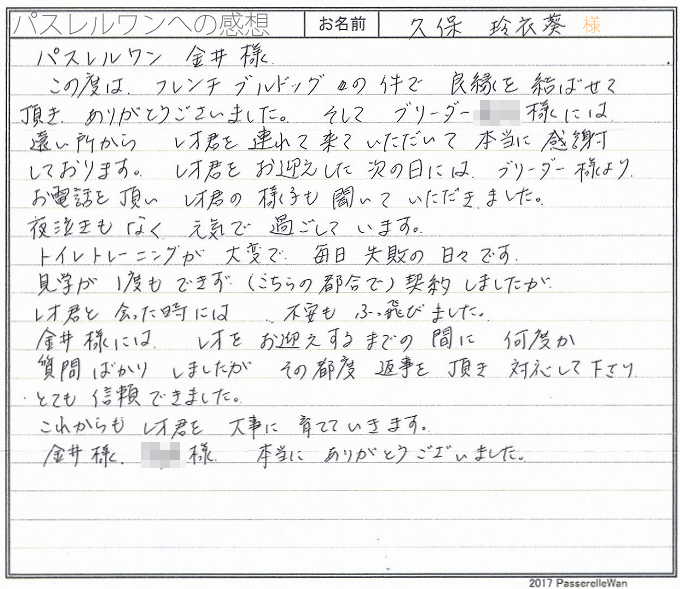 パスレルワンへの感想 お名前 久保 玲衣葵 様
パスレルワン 金井 様
この度は、フレンチブルドッグの件で 良縁を 結ばせて
頂き ありがとうございました。そして ブリーダー 様には
遠い所から レオ君を 連れて来て いただいて 本当に 感謝
しております。レオ君を お迎えした 次の日には、ブリーダー様より
お電話を 頂い レオ君の 様子も 聞いて いただきました。
夜泣きも なく 元気で 過ごして います。
トイレトレーニングが 大変で 毎日 失敗の 日々です。
見学が 1度も できず (こちらの都合で) 契約しましたが
レオ君と 会った時には 、不安も ふっ飛びました。
金井様には レオを お迎えするまでの 間に 何度か
質問ばかり しましたが その都度 返事を 頂き 対応して下さり
とても 信頼できました。
これからも レオ君を 大事に 育てていきます。
金井様、 様 本当に ありがとうございました。
2017 PasserelleWan